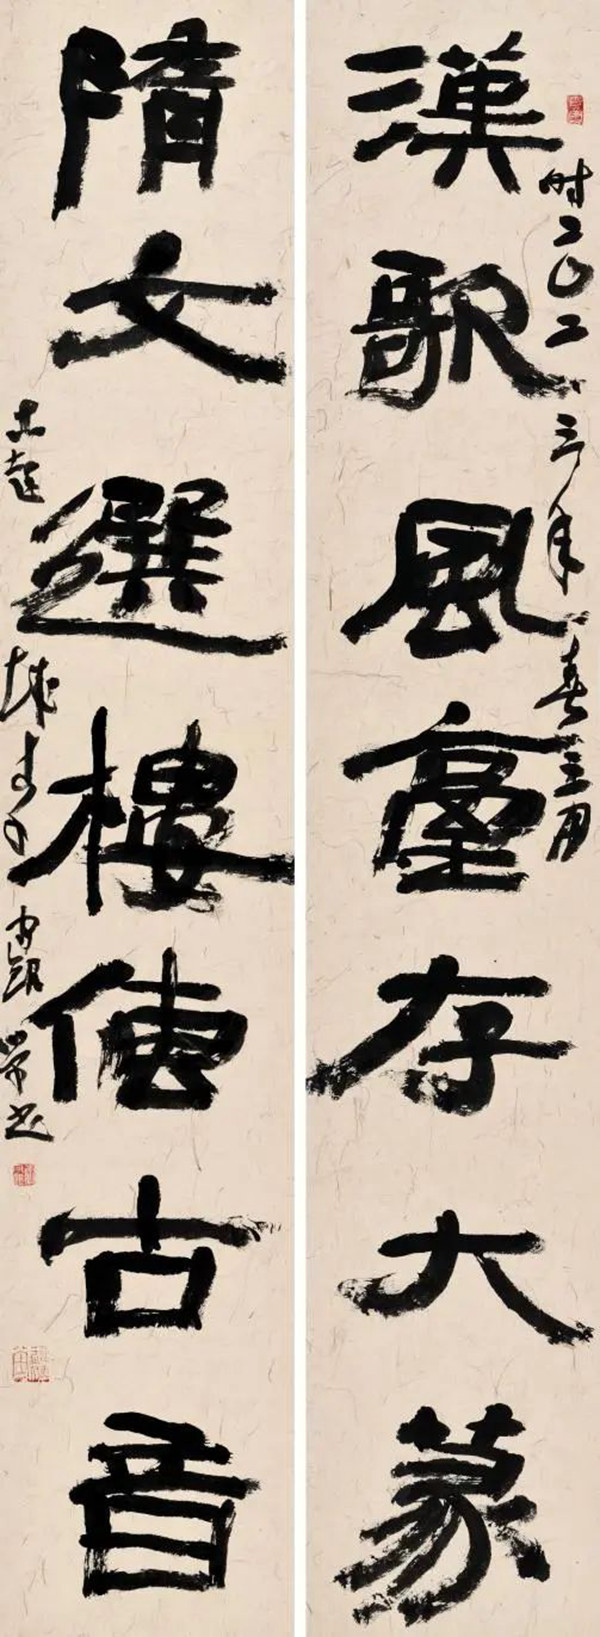 漢歌風臺存大篆
时二〇二三年春三月
隋文選樓傳古音